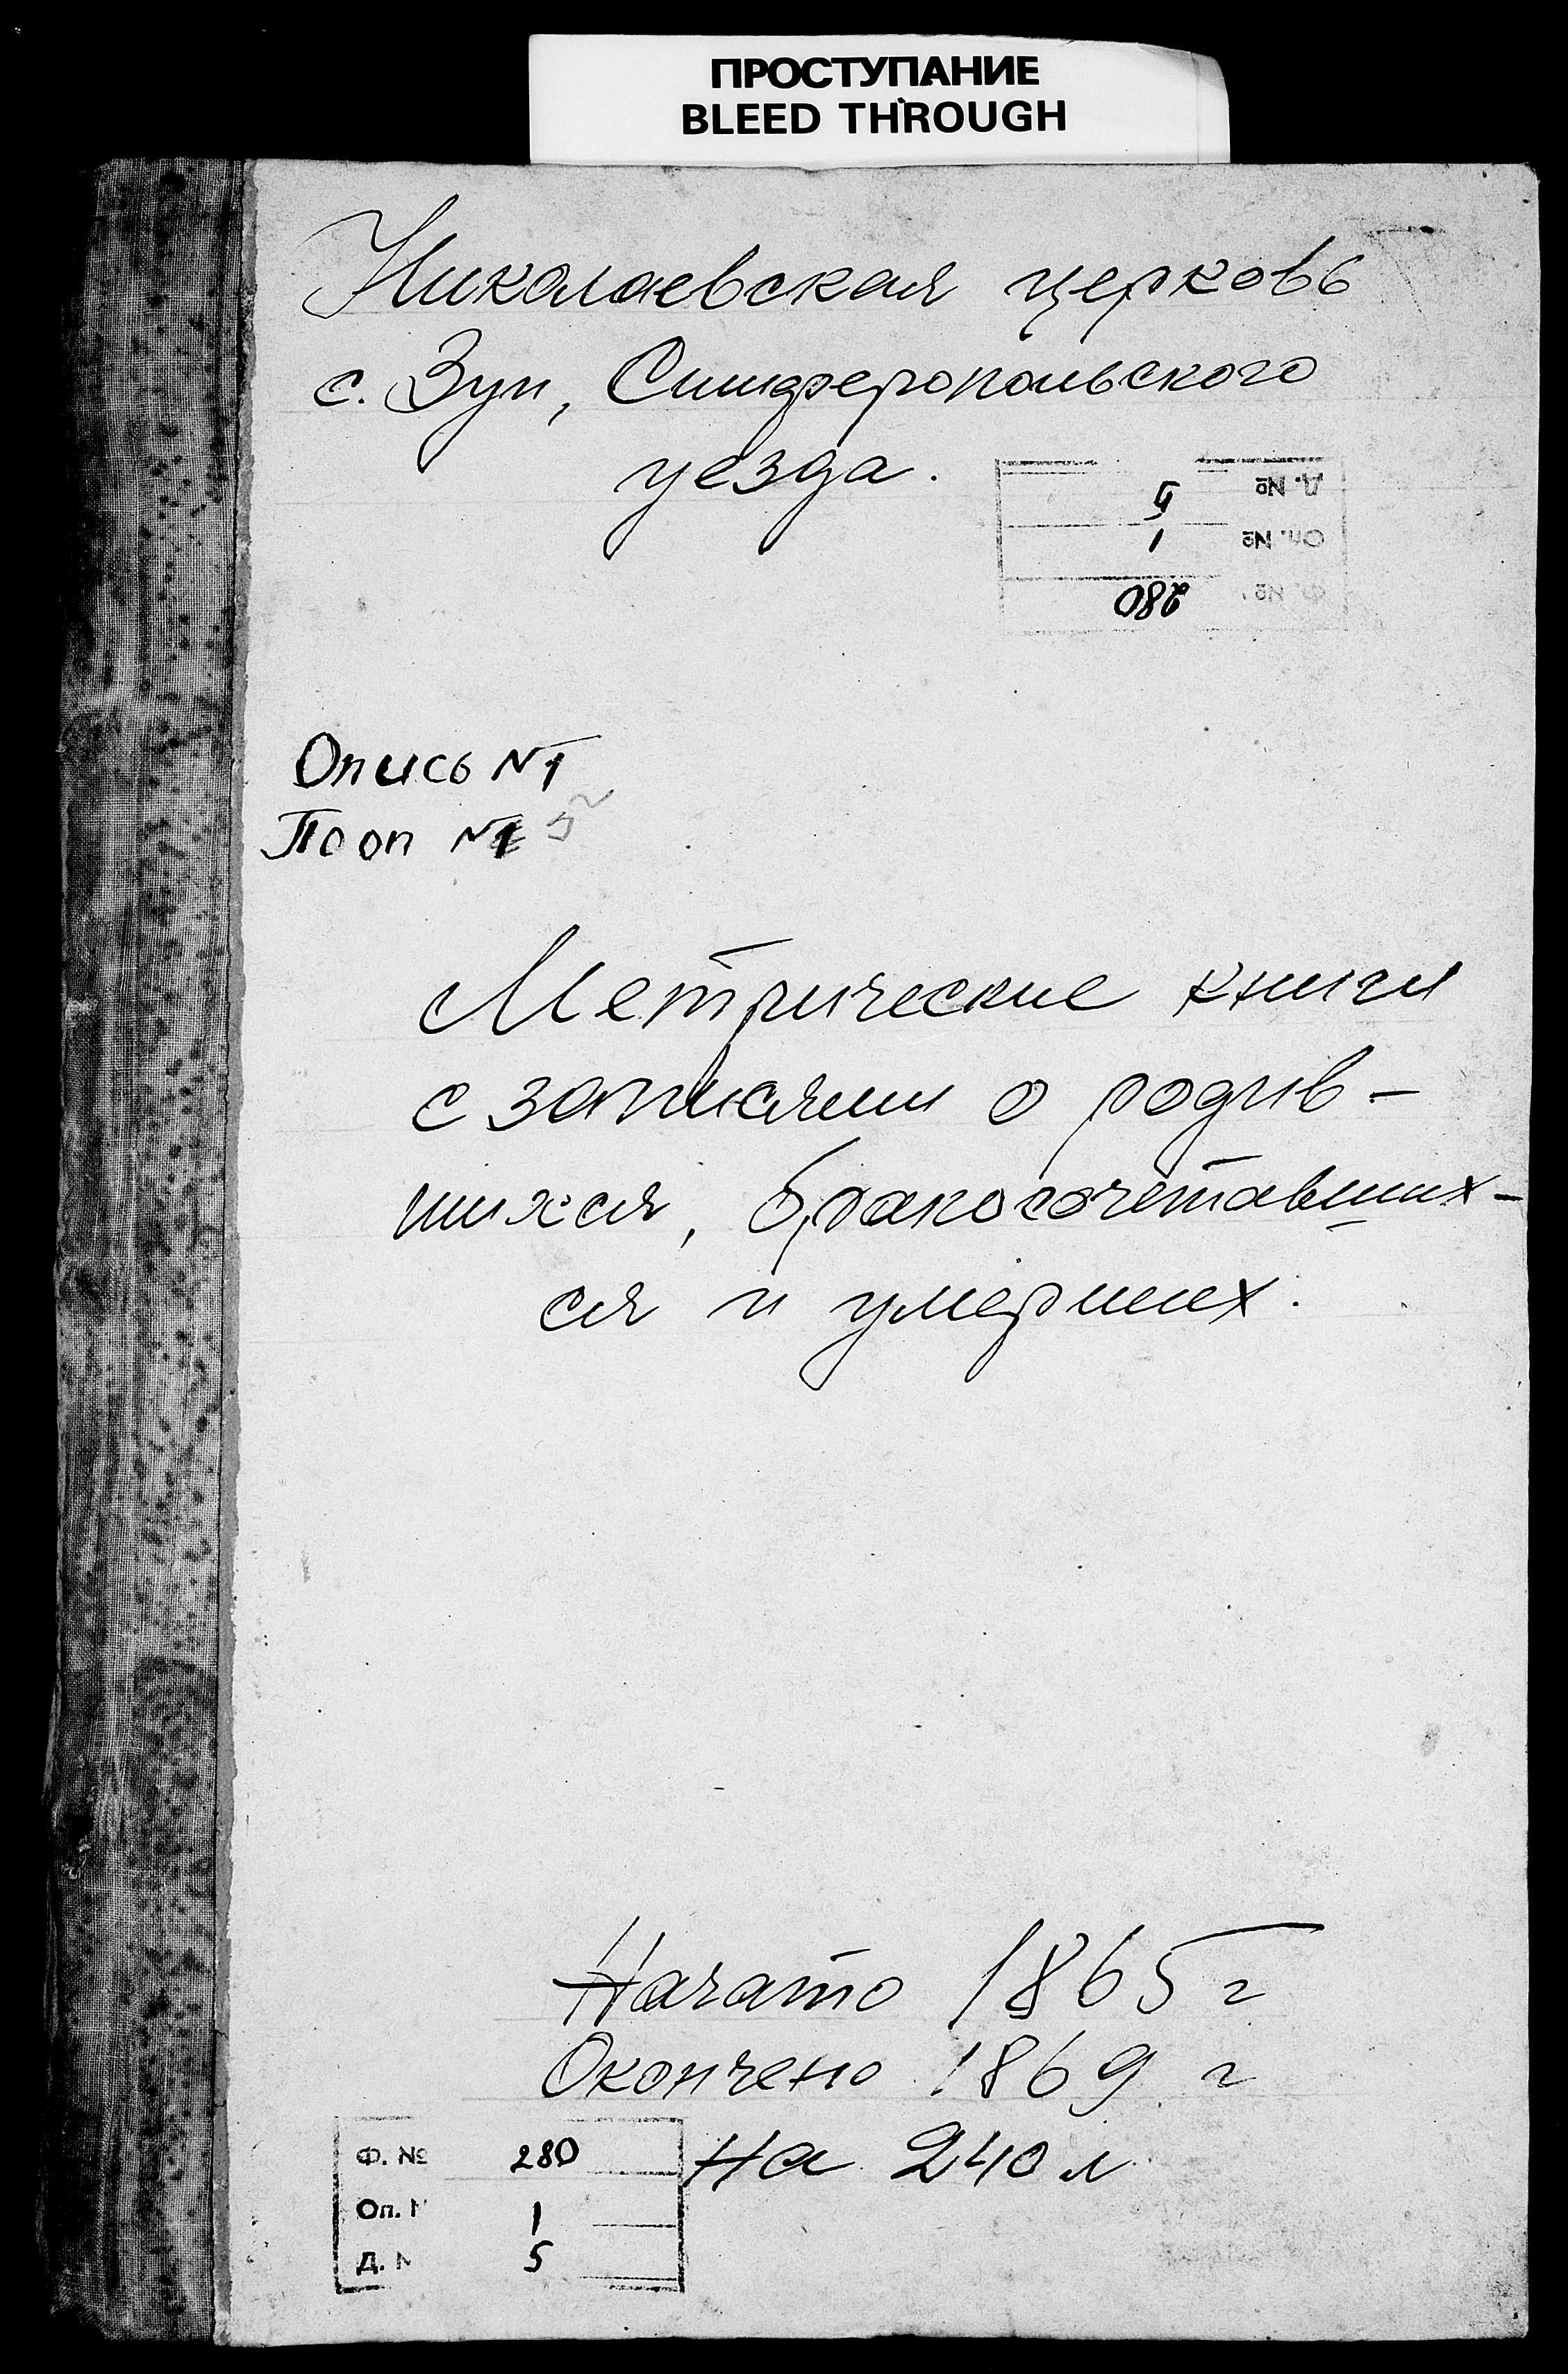 ПРОСТУПАНИЕ
BLEED THROUGH
Николаевская церковь
с. Зуи, Симферопольского
уезда.
Д. № 5
Оп. № 1
Ф. № 280
Опись №1
По оп №
Метрические книги
с записями о родив-
шихся, бракосочетавших-
ся и умерших.
Начато 1865 г
Окончено 1869 г
на 240 л
Ф. № 280
Оп. № 1
Д. № 5